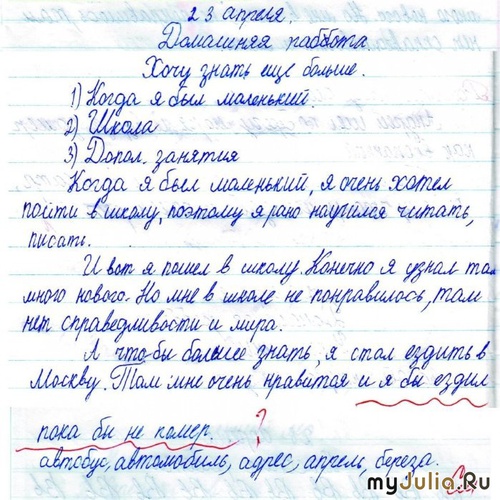 23 апреля.
Домашняя работа.
Хочу знать еще больше.
1) Когда я был маленький.
2) Школа
3) Допол. занятия
Когда я был маленький, я очень хотел
пойти в школу, поэтому я рано научился читать,
писать.
И вот я пошел в школу. Конечно я узнал там
много нового. Но мне в школе не понравилось, там
нет справедливости и мира.
А что бы больше знать, я стал ездить в
Москву. Там мне очень нравится и я бы ездил
пока бы не помер. ?
автобус, автомобиль, адрес, апрель, береза.
myJulia.Ru